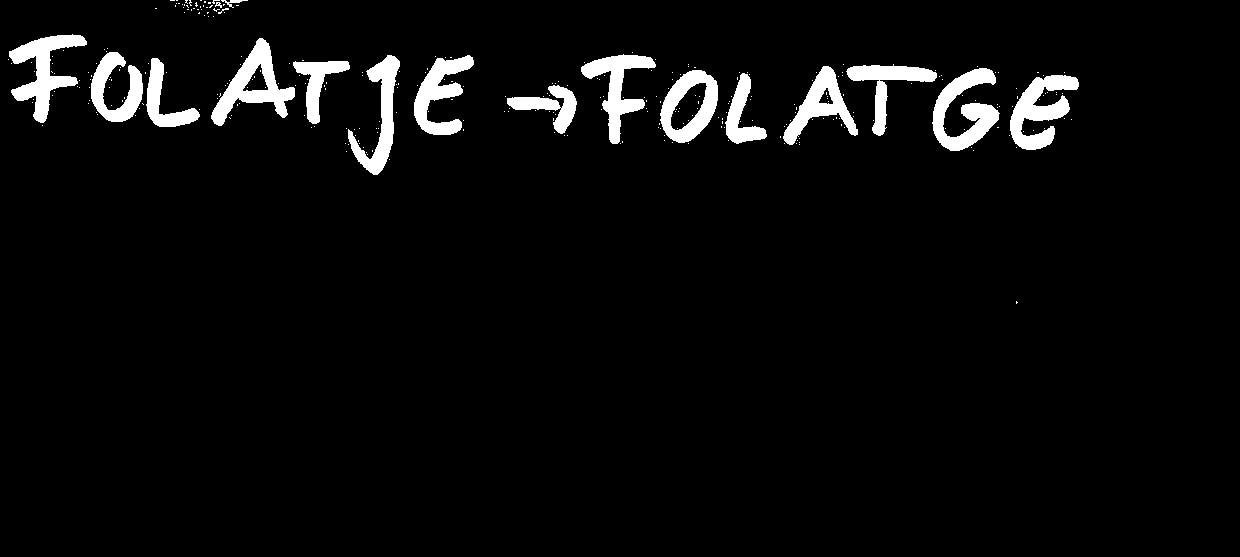 FOLATJE → FOLATGE